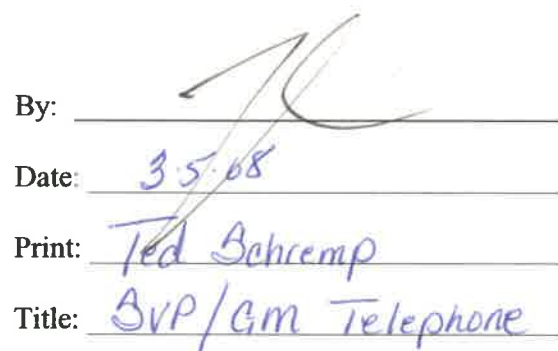 By:
Date: 3.5.08
Print: Ted Schremp
Title: SVP/GM Telephone